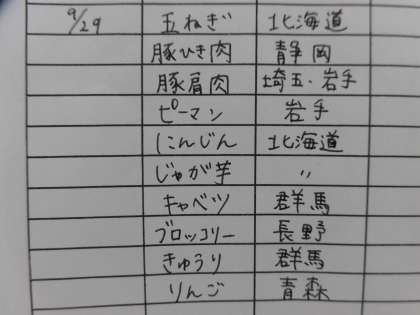 9/29 玉ねぎ 北海道
豚ひき肉 静岡
豚肩肉 埼玉・岩手
ピーマン 岩手
にんじん 北海道
じゃが芋 〃
キャベツ 群馬
ブロッコリー 長野
きゅうり 群馬
りんご 青森